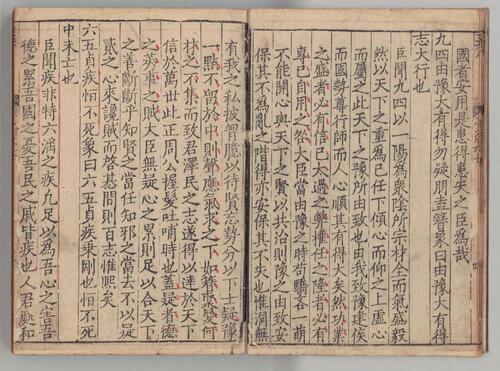 國者安用是患得患失之臣為哉
九四由豫大有得勿疑朋盍簪象曰由豫大有得
志大行也
臣聞九四以一陽為衆陰所宗材全而氣盛毅
然以天下之重為己任下傾心而仰之上虛心
而屬之此天下之豫所由致也由我致豫建侯
而國勢尊行師而人心順其有得大矣然功業
之盛者必有信已太過之弊權任之隆者必有
尊己自用之咎大臣當由豫之時苟驕吝一萌
不能開心與天下之賢以共治則豫之由致安
保其不為亂之階得亦安保其不失也惟洞無
有我之私披胸臆以待賢忘勢分以下士疑謹
一點不留於中則聲應氣求之下如
材之不集而致君澤民之志遂得以達於天下
信於萬世此正周公握髮吐哺時也蓋疑者德
之善斷斷乎知賢之當任知邪之當去不以是
貳之心來讒賊而啓基間則百志惟熙矣
六五貞疾恒不死象曰六五貞疾乗剛也恒不死
中未亡也
臣聞疾非特六沴之疾凡足以為吾心之害吾
德之累吾國之憂吾民之戚皆疾也人君處和